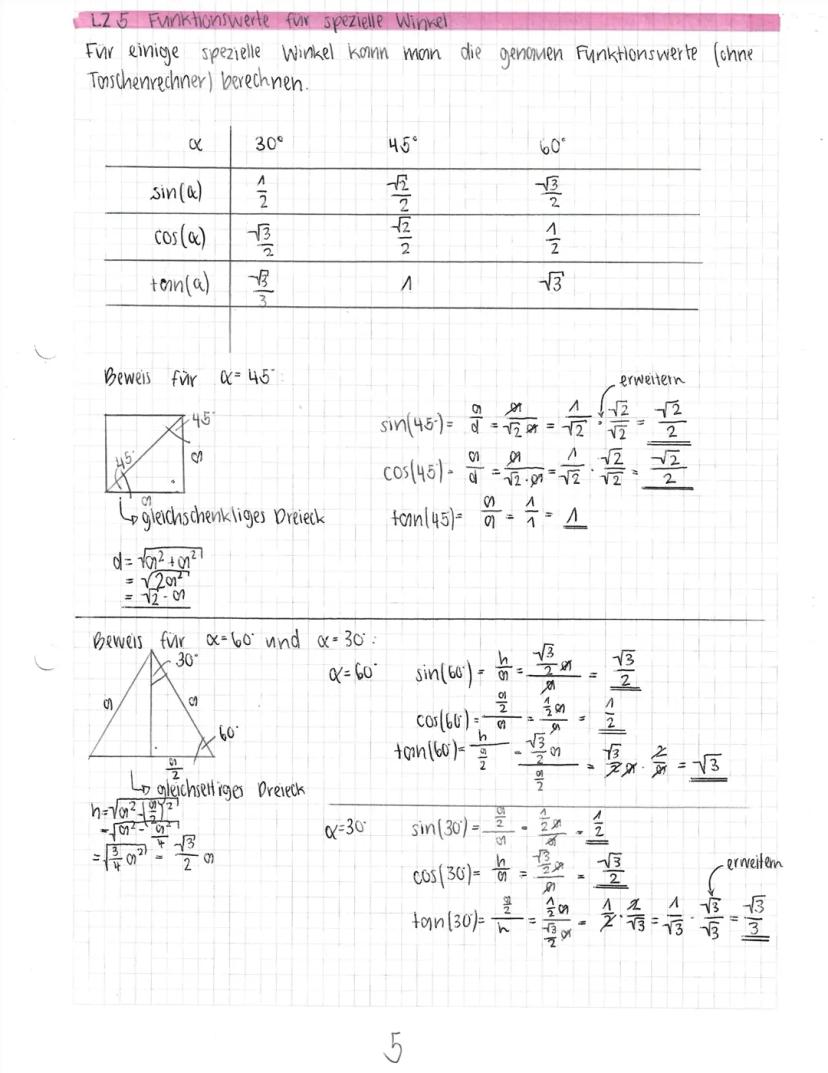 LZ 5 Funktionswerte für spezielle Winkel
Für einige spezielle Winkel kann man die genauen Funktionswerte (ohne
Taschenrechner) berechnen.
α 30° 45° 60°
sin(α) 1/2 √2/2 √3/2
cos(α) √3/2 √2/2 1/2
tan(α) √3/3 1 √3
Beweis für α = 45°:
45°
45°
a
a
↳ gleichschenkliges Dreieck
d = √(a² + a²)
= √(2a²)
= √2 · a
erweitern
sin(45°) = a/d = a/(√2 a) = 1/√2 · √2/√2 = √2/2
cos(45°) = a/d = a/(√2 · a) = 1/√2 · √2/√2 = √2/2
tan(45) = a/a = 1/1 = 1
Beweis für α = 60° und α = 30°:
30°
a
a
60°
a/2
↳ gleichseitiges Dreieck
h = √(a² - (a/2)²)
= √(a² - a²/4)
= √(3/4 a²) = √3/2 a
α = 60° sin(60°) = h/a = (√3/2 a)/a = √3/2
cos(60°) = (a/2)/a = (1/2 a)/a = 1/2
tan(60°) = h/(a/2) = (√3/2 a)/(a/2) = √3/2 a · 2/a = √3
α = 30° sin(30°) = (a/2)/a = (1/2 a)/a = 1/2
cos(30°) = h/a = (√3/2 a)/a = √3/2
erweitern
tan(30°) = (a/2)/h = (1/2 a)/(√3/2 a) = 1/2 · 2/√3 = 1/√3 · √3/√3 = √3/3
5